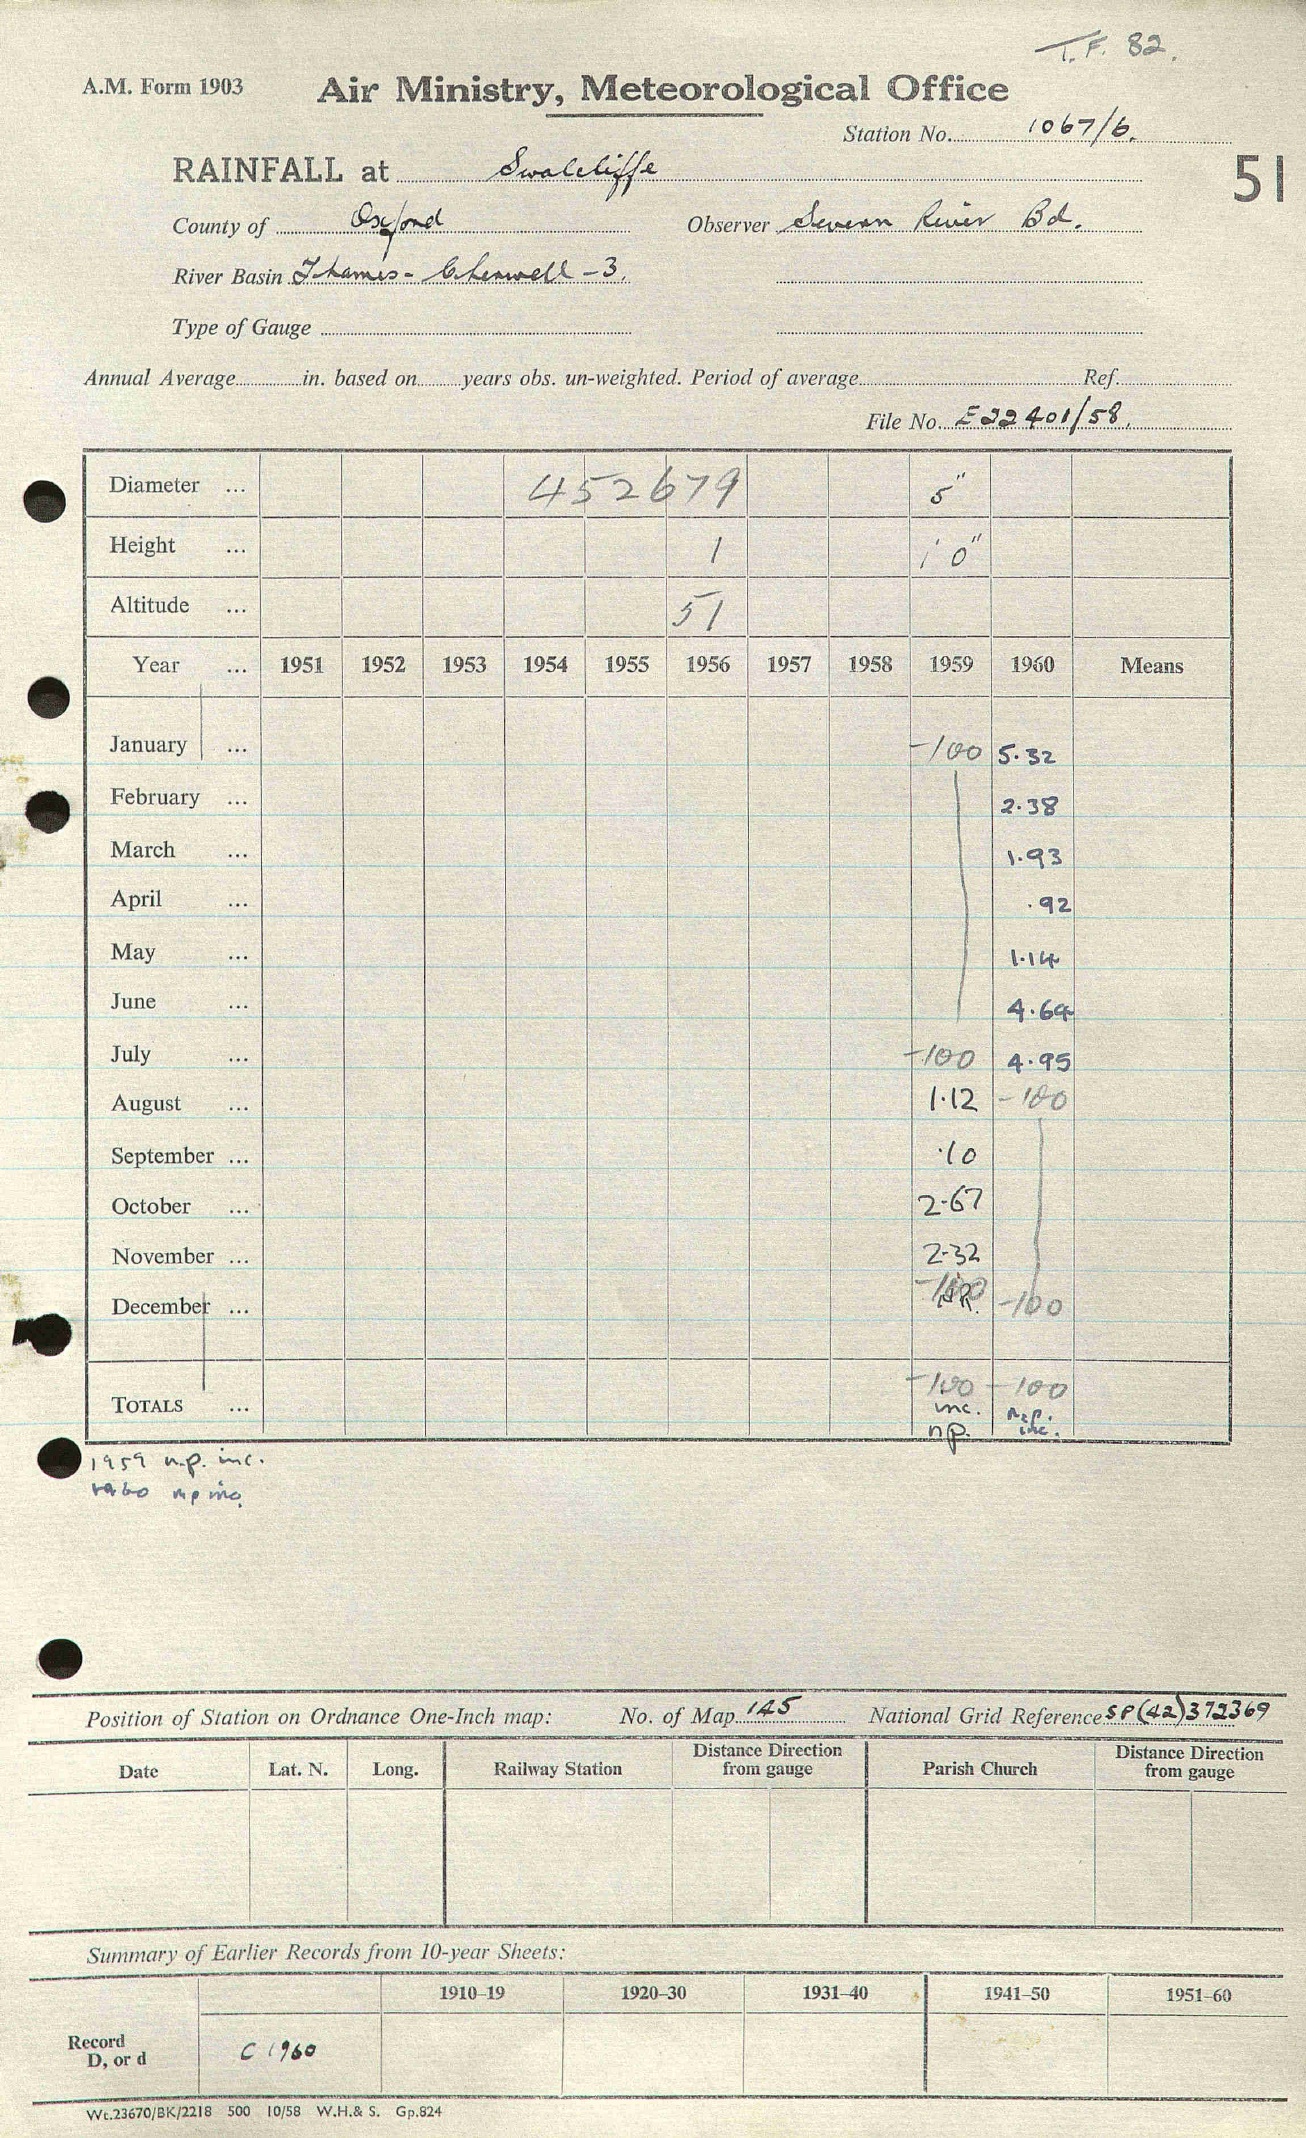 T.F. 82.
A.M. Form 1903 Air Ministry, Meteorological Office
Station No. 1067/6.
RAINFALL at Swalcliffe
51
County of Oxford Observer Severn River Bd.
River Basin Thames - Cherwell - 3.
Type of Gauge
Annual Average in. based on years obs. un-weighted. Period of average Ref.
File No. E22401/58.
Diameter ... 452679 5"
Height ... 1 1' 0"
Altitude ... 51
Year ... 1951 1952 1953 1954 1955 1956 1957 1958 1959 1960 Means
January ... -100 5.32
February ... 2.38
March ... 1.93
April ... .92
May ... 1.14
June ... 4.64
July ... -100 4.95
August ... 1.12 -100
September ... .10
October ... 2.67
November ... 2.32
December ... -100 N.R. -100
TOTALS ... -100 -100
inc. n.p.
n.p. inc.
1959 n.p. inc.
1960 n p inc.
Position of Station on Ordnance One-Inch map: No. of Map 145 National Grid Reference SP(42)372369
Date Lat. N. Long. Railway Station Distance Direction from gauge Parish Church Distance Direction from gauge
Summary of Earlier Records from 10-year Sheets:
1910–19 1920–30 1931–40 1941–50 1951–60
Record
D, or d C 1960
Wt.23670/BK/2218 500 10/58 W.H.& S. Gp.824